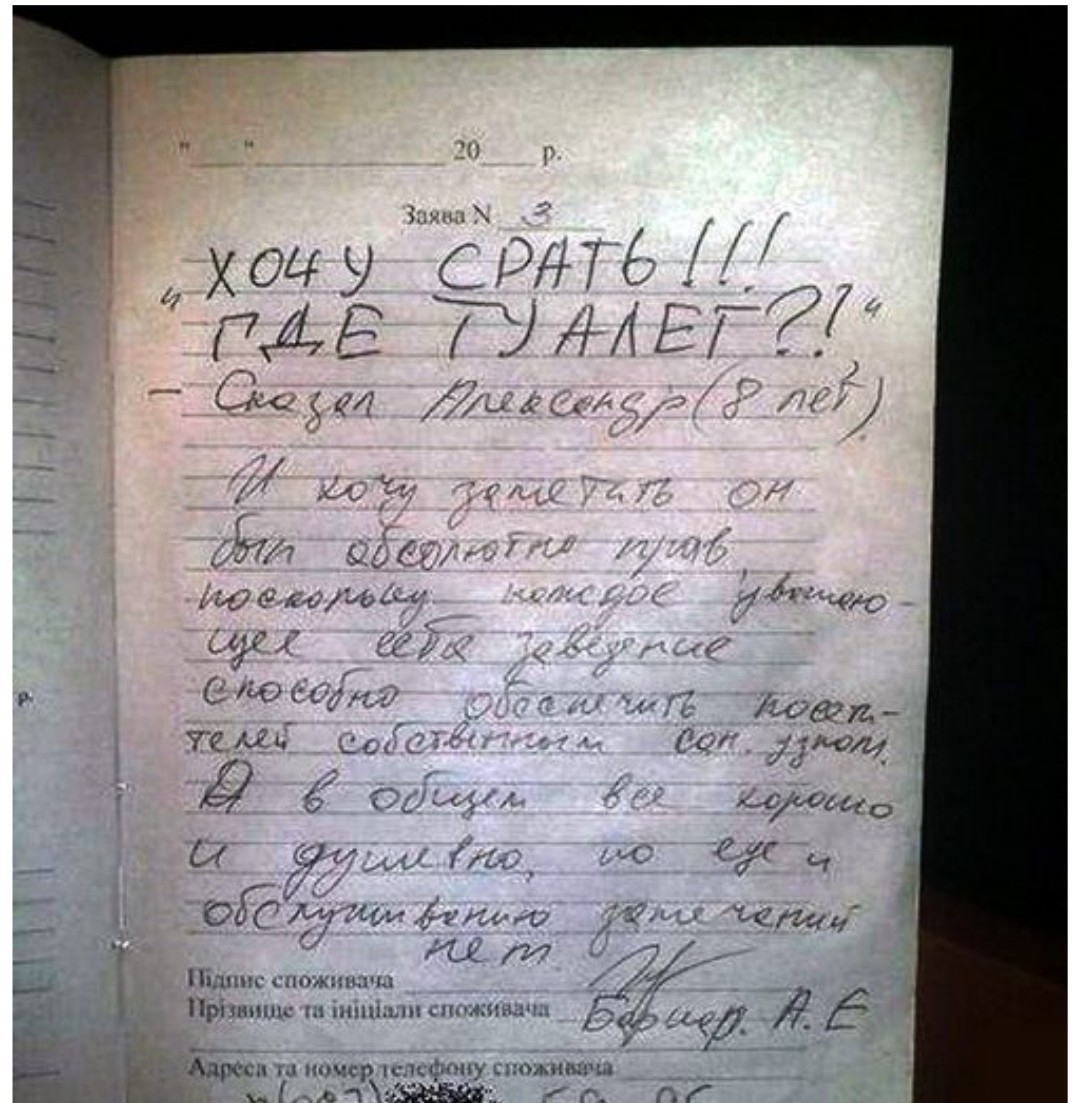 "___" ____________ 20___ р.
Заява N 3
"ХОЧУ СРАТЬ!!!
ГДЕ ТУАЛЕТ?!"
- Сказал Александр (8 лет).
И хочу заметить он
был абсолютно прав,
поскольку каждое уважаю-
щее себя заведение
способно обеспечить посети-
телей собственным сан. узлом.
А в общем все хорошо
и душевно, по еде и
обслуживанию замечаний
нет
Підпис споживача
Прізвище та ініціали споживача А. Е
Адреса та номер телефону споживача
р.